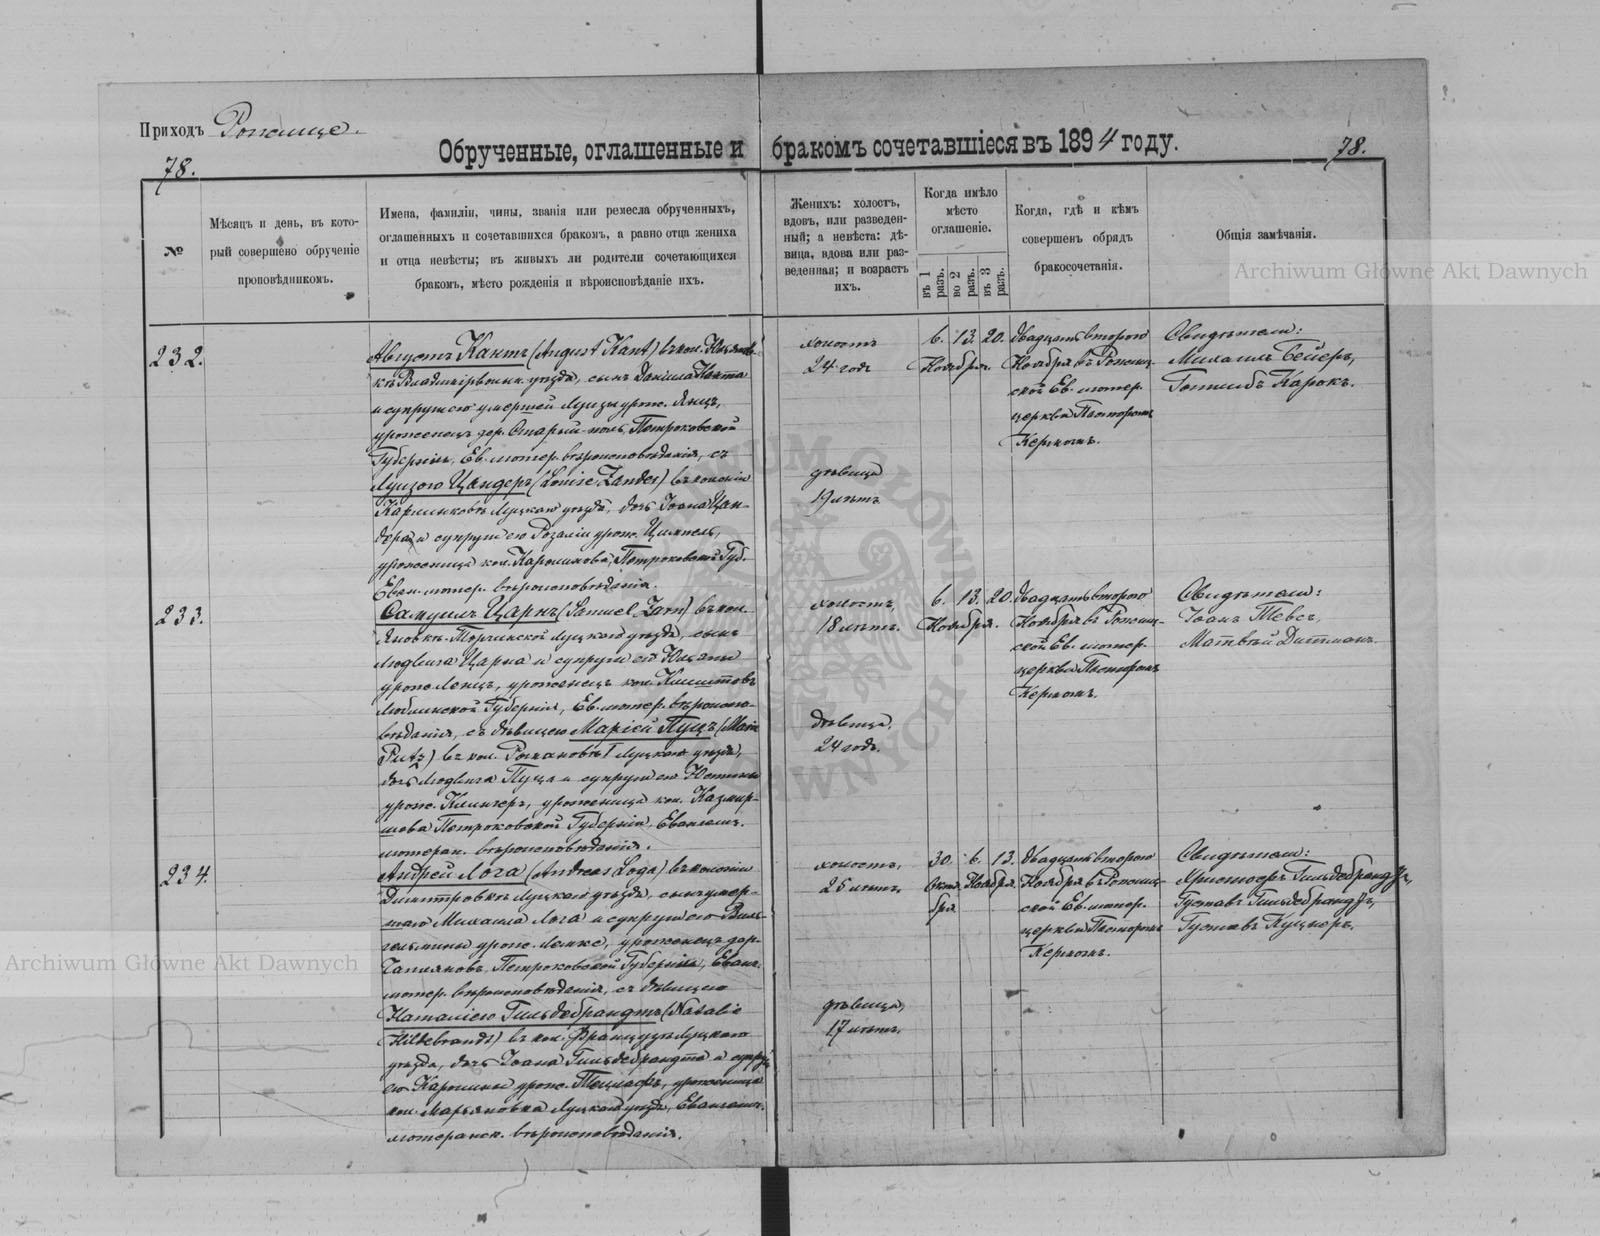 Приходъ Рожище.
78.
Обрученные, оглашенные и бракомъ сочетавшіеся въ 1894 году.
78.
№
Мѣсяцъ и день, въ кото-
рый совершено обрученіе
проповѣдникомъ.
Имена, фамиліи, чины, званія или ремесла обрученныхъ,
оглашенныхъ и сочетавшихся бракомъ, а равно отца жениха
и отца невѣсты; въ живыхъ ли родители сочетающихся
бракомъ, мѣсто рожденія и вѣроисповѣданіе ихъ.
Женихъ: холостъ,
вдовъ, или разведен-
ный; а невѣста: дѣ-
вица, вдова или раз-
веденная; и возрастъ
ихъ.
Когда имѣло
мѣсто
оглашеніе.
въ 1 разъ.
во 2 разъ.
въ 3 разъ.
Когда, гдѣ и кѣмъ
совершенъ обрядъ
бракосочетанія.
Общія замѣчанія.
Archiwum Główne Akt Dawnych
232.
Августъ Кантъ (August Kant) въ кол.
Владимірволын. уѣзда, сынъ Даніила Канта
и супруги его умершей Луизы урож. Янцъ,
уроженецъ дер. Старый-поль, Петроковской
Губерніи, Ев. лютер. вѣроисповѣданія, съ
Луизою Цандеръ (Louise Zander) въ колоніи
Луцкаго уѣзда, дочь Іоана Цан-
дера и супруги его Розаліи урож.
уроженица кол. Каролинова, Петроковской Губ.
Еван. лютер. вѣроисповѣданія.
холостъ
24 годъ
дѣвица
19 лѣтъ
6. 13. 20.
Ноября.
двадцать второго
Ноября въ Рожищ-
ской Ев. лютер.
церкви Пасторомъ
Керномъ.
Свидѣтели:
Михаилъ Бейеръ,
Готлибъ Карокъ.
233.
Самуилъ Царнъ (Samuel Zarn) въ кол.
Яновкѣ-Торчинской Луцкаго уѣзда, сынъ
Людвига Царна и супруги его
урож. Ленцъ, уроженецъ кол.
Люблинской Губерніи, Ев. лютер. вѣроиспо-
вѣданія, съ дѣвицею Маріей Пуцъ (Marie
Putz) въ кол. Рожановкѣ I Луцкаго уѣзда,
дочь Людвига Пуца и супруги его Юстины
урож. Клингеръ, уроженица кол. Казмир-
шева Петроковской Губерніи, Евангел.
лютеран. вѣроисповѣданія.
холостъ,
18 лѣтъ.
дѣвица,
24 годъ.
6. 13. 20.
Ноября.
двадцать второго
Ноября въ Рожищ-
ской Ев. лютер.
церкви Пасторомъ
Керномъ.
Свидѣтели:
Іоанъ Тевсъ,
Матвѣй Дитманъ.
234.
Андрей Лога (Andreas Loga) въ колоніи
Дмитровкѣ Луцкаго уѣзда, сынъ умер-
шаго Михаила Лога и супруги его Виль-
гельмины урож. Лемке, уроженецъ дер.
Петроковской Губерніи, Еванг.
лютер. вѣроисповѣданія, съ дѣвицею
Наталіею Гильдебрандтъ (Natalie
Hildebrandt) въ кол. Луцкаго
уѣзда, дочь Іоана Гильдебрандта и супруги
его Каролины урож. уроженица
кол. Марьяновка Луцкаго уѣзда, Евангелич.
лютеранск. вѣроисповѣданія.
холостъ,
25 лѣтъ,
дѣвица,
17 лѣтъ,
30. 6. 13.
Октя- Ноября.
бря
двадцать второго
Ноября въ Рожищ-
ской Ев. лютер.
церкви Пасторомъ
Керномъ.
Свидѣтели:
Христофъ Гильдебрандтъ,
Густавъ Гильдебрандтъ,
Густавъ Куцнеръ.
Archiwum Główne Akt Dawnych